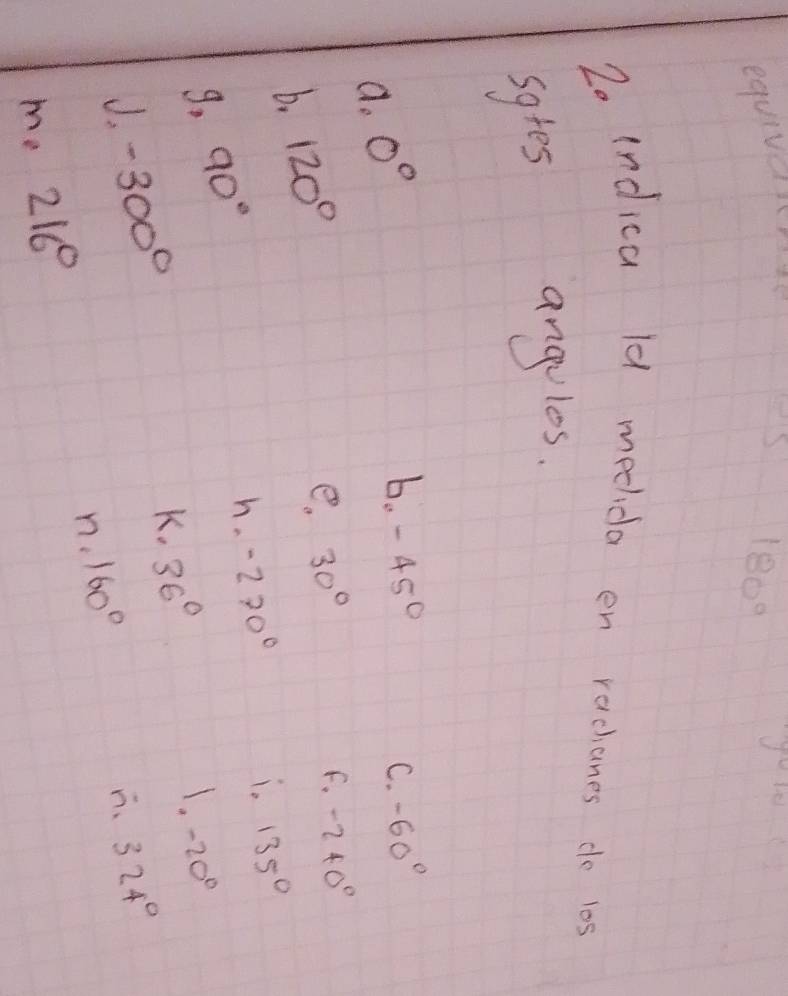 180°
2. indica la medida en radianes de los
sgtes angulos.
a. 0° b. -45° c. -60°
b. 120° e. 30° f. -240°
g. 90° h. -270° i. 135°
j. -300° k. 36° l. -20°
m. 216° n. 160° ñ. 324°